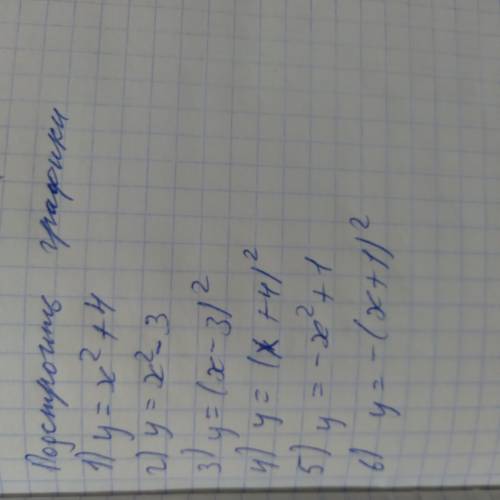 Подстроить графики
1) y = x² + 4
2) y = x² - 3
3) y = (x - 3)²
4) y = (x + 4)²
5) y = -x² + 1
6) y = -(x + 1)²